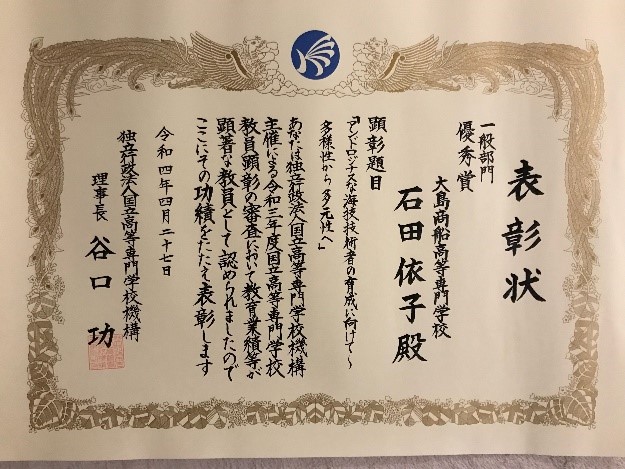 表彰状
一般部門
優秀賞
大島商船高等専門学校
石田依子殿
顕彰題目
「アンドロジナスな海技技術者の育成に向けて～
多様性から多元性へ」
あなたは独立行政法人国立高等専門学校機構
主催による令和三年度国立高等専門学校
教員顕彰の審査において教育業績等が
顕著な教員として認められましたので
ここにその功績をたたえ表彰します
令和四年四月二十七日
独立行政法人国立高等専門学校機構
理事長 谷口功